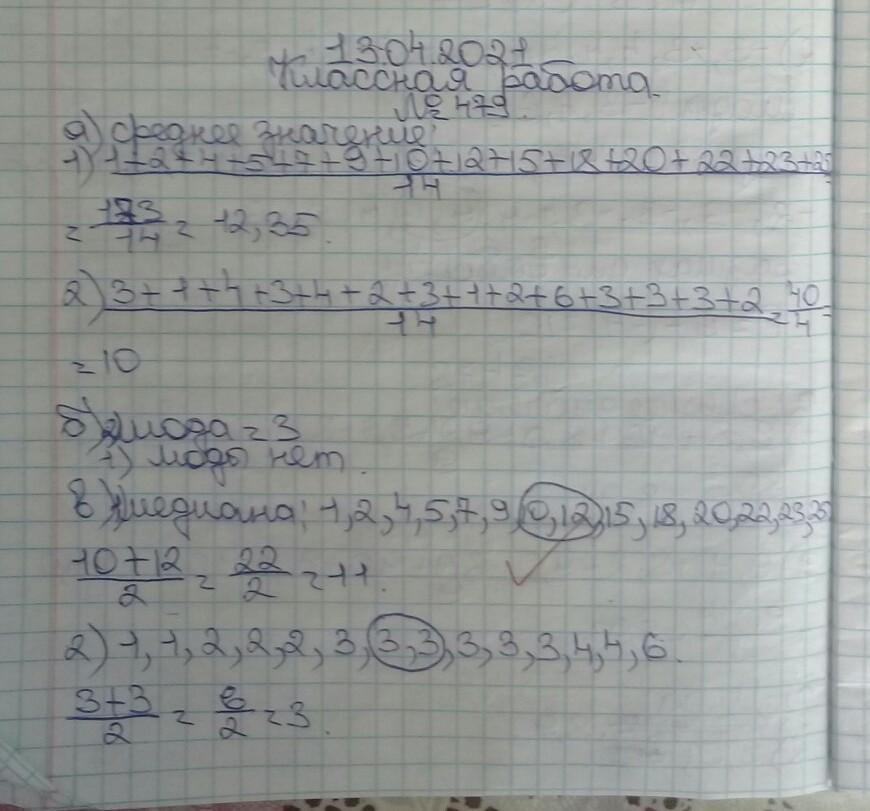 13.04.2021
Классная работа
№ 479.
а) среднее значение:
1) 1+2+4+5+7+9+10+12+15+18+20+22+23+25
14
= 173/14 = 12,35.
2) 3+1+4+3+4+2+3+1+2+6+3+3+3+2/14 = 40/4 =
= 10
б) 2) мода = 3
1) моды нет.
в) 1) медиана: 1,2,4,5,7,9,10,12,15,18,20,22,23,25
10+12/2 = 22/2 = 11.
2) 1,1,2,2,2,3,3,3,3,3,3,4,4,6.
3+3/2 = 6/2 = 3.